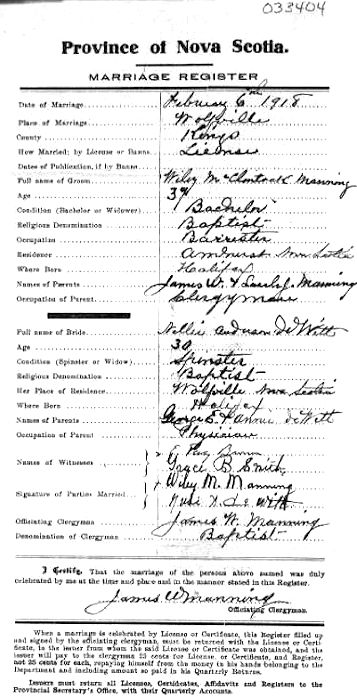 033404
Province of Nova Scotia.
MARRIAGE REGISTER
Date of Marriage February 6th 1918
Place of Marriage Wolfville
County Kings
How Married; by License or Banns License
Dates of Publication, if by Banns
Full name of Groom Wiley Manning
Age 39
Condition (Bachelor or Widower) Bachelor
Religious Denomination Baptist
Occupation Barrister
Residence Amherst Nova Scotia
Where Born Halifax
Names of Parents James W. & Manning
Occupation of Parent Clergyman
Full name of Bride Nellie Anderson DeWitt
Age 30
Condition (Spinster or Widow) Spinster
Religious Denomination Baptist
Her Place of Residence Wolfville Nova Scotia
Where Born Halifax
Names of Parents George E. & Annie DeWitt
Occupation of Parent Physician
Names of Witnesses
Grace B Smith
Signature of Parties Married Wiley M. Manning
De Witt
Officiating Clergyman James W. Manning
Denomination of Clergyman Baptist
I Certify, That the marriage of the persons above named was duly
celebrated by me at the time and place and in the manner stated in this Register.
James W Manning
Officiating Clergyman
When a marriage is celebrated by License or Certificate, this Register filled up
and signed by the officiating clergyman, must be returned with the License or Certi-
ficate, to the issuer from whom the said License or Certificate was obtained, and the
issuer will pay to the clergyman 25 cents for License or Certificate, and Register,
not 25 cents for each, repaying himself from the money in his hands belonging to the
Department and including amount so paid in his Quarterly Returns.
Issuers must return all Licenses, Certificates, Affidavits and Registers to the
Provincial Secretary's Office, with their Quarterly Accounts.